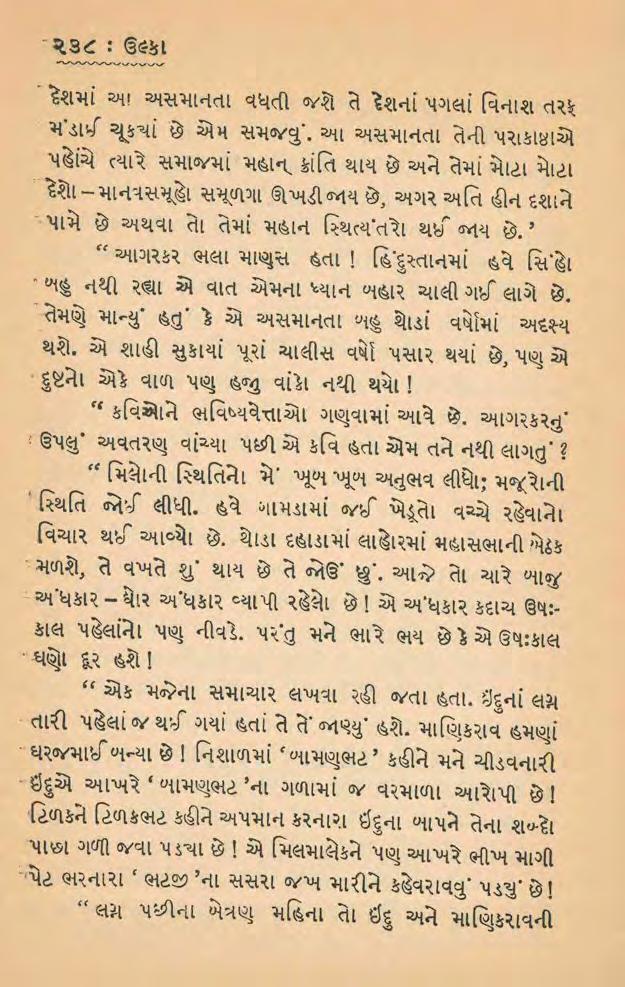 ૨૩૮ : ઉલ્કા
દેશમાં આ અસમાનતા વધતી જશે તે દેશનાં પગલાં વિનાશ તરફ
મંડાઈ ચૂકયાં છે એમ સમજવું. આ અસમાનતા તેની પરાકાષ્ઠાએ
પહોંચે ત્યારે સમાજમાં મહાન્ ક્રાંતિ થાય છે અને તેમાં મોટા મોટા
દેશો – માનવસમૂહો સમૂળગા ઊખડી જાય છે, અગર અતિ હીન દશાને
પામે છે અથવા તો તેમાં મહાન સ્થિત્યંતરો થઈ જાય છે.’
“ આગરકર ભલા માણુસ હતા ! હિંદુસ્તાનમાં હવે સિંહો
બહુ નથી રહ્યા એ વાત એમના ધ્યાન બહાર ચાલી ગઈ લાગે છે.
તેમણે માન્યું હતું કે એ અસમાનતા બહુ થોડાં વર્ષોમાં અદશ્ય
થશે. એ શાહી સુકાયાં પૂરાં ચાલીસ વર્ષો પસાર થયાં છે, પણ એ
દુષ્ટનો એકે વાળ પણ હજી વાંકો નથી થયો !
“ કવિઓને ભવિષ્યવેત્તાઓ ગણવામાં આવે છે. આગરકરનું
ઉપલું અવતરણ વાંચ્યા પછી એ કવિ હતા એમ તને નથી લાગતું ?
“ મિલોની સ્થિતિનો મેં ખૂબ ખૂબ અનુભવ લીધો; મજૂરોની
સ્થિતિ જોઈ લીધી. હવે ગામડામાં જઈ ખેડૂતો વચ્ચે રહેવાનો
વિચાર થઈ આવ્યો છે. થોડા દહાડામાં લાહોરમાં મહાસભાની બેઠક
મળશે, તે વખતે શું થાય છે તે જોઉં છું. આજે તો ચારે બાજુ
અંધકાર – ઘોર અંધકાર વ્યાપી રહેલો છે ! એ અંધકાર કદાચ ઉષઃ-
કાલ પહેલાંનો પણ નીવડે. પરંતુ મને ભારે ભય છે કે એ ઉષઃકાલ
ઘણો દૂર હશે !
“ એક મજેના સમાચાર લખવા રહી જતા હતા. ઇંદુનાં લગ્ન
તારી પહેલાં જ થઈ ગયાં હતાં તે તેં જાણ્યું હશે. માણિકરાવ હમણાં
ઘરજમાઈ બન્યા છે ! નિશાળમાં ‘બામણભટ’ કહીને મને ચીડવનારી
ઇંદુએ આખરે ‘બામણભટ’ના ગળામાં જ વરમાળા આરોપી છે !
ટિળકને ટિળકભટ કહીને અપમાન કરનારા ઇંદુના બાપને તેના શબ્દો
પાછા ગળી જવા પડયા છે ! એ મિલમાલેકને પણ આખરે ભીખ માગી
પેટ ભરનારા ‘ ભટજી ’ના સસરા જખ મારીને કહેવરાવવું પડયું છે !
“ લગ્ન પછીના બેત્રણ મહિના તો ઇંદુ અને માણિકરાવની